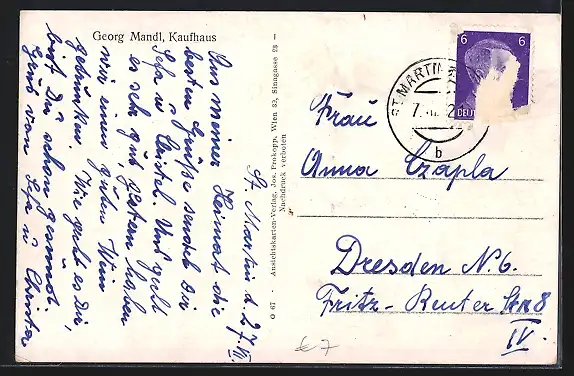 Georg Mandl, Kaufhaus
St. Martin d. 27. VI.
Aus meiner Heimat die
besten Grüße sendet dir
Sefa u Christel. Uns geht
es sehr gut, gestern haben
wir einen guten Wein
getrunken. Wie geht es Dir,
bist Du schon gesund.
Gruß von Sefa u Christa
O 67 · Ansichtskarten-Verlag, Jos. Prokopp, Wien 82, Sinngasse 23 —
Nachdruck verboten
6 6
ST. MARTIN
7.
b
Frau
Anna Czapla
Dresden N. 6.
Fritz-Reuter Str 8
IV.
€ 7